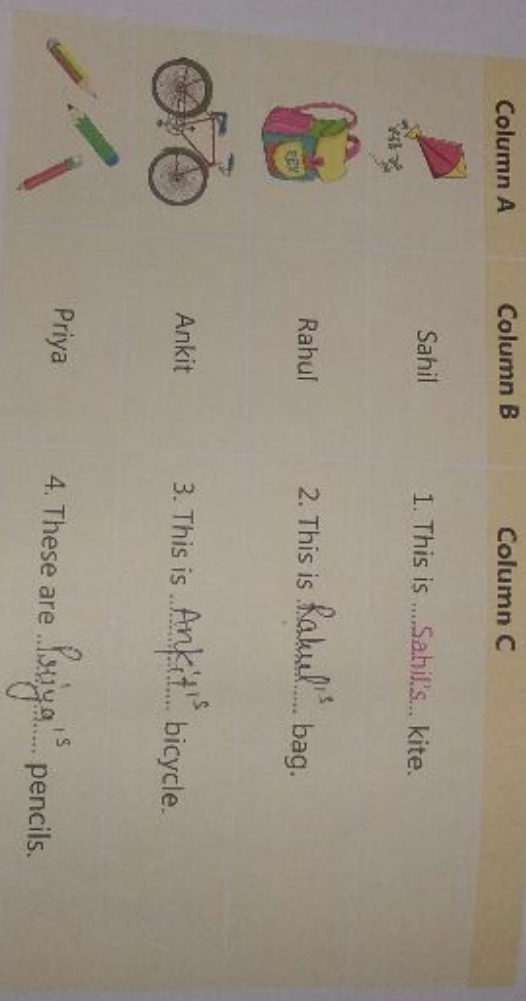 Column A Column B Column C
Sahil 1. This is ....Sahil's... kite.
Rahul 2. This is .Rahul's..... bag.
Ankit 3. This is ...Ankit's.... bicycle.
Priya 4. These are ...Priya's..... pencils.